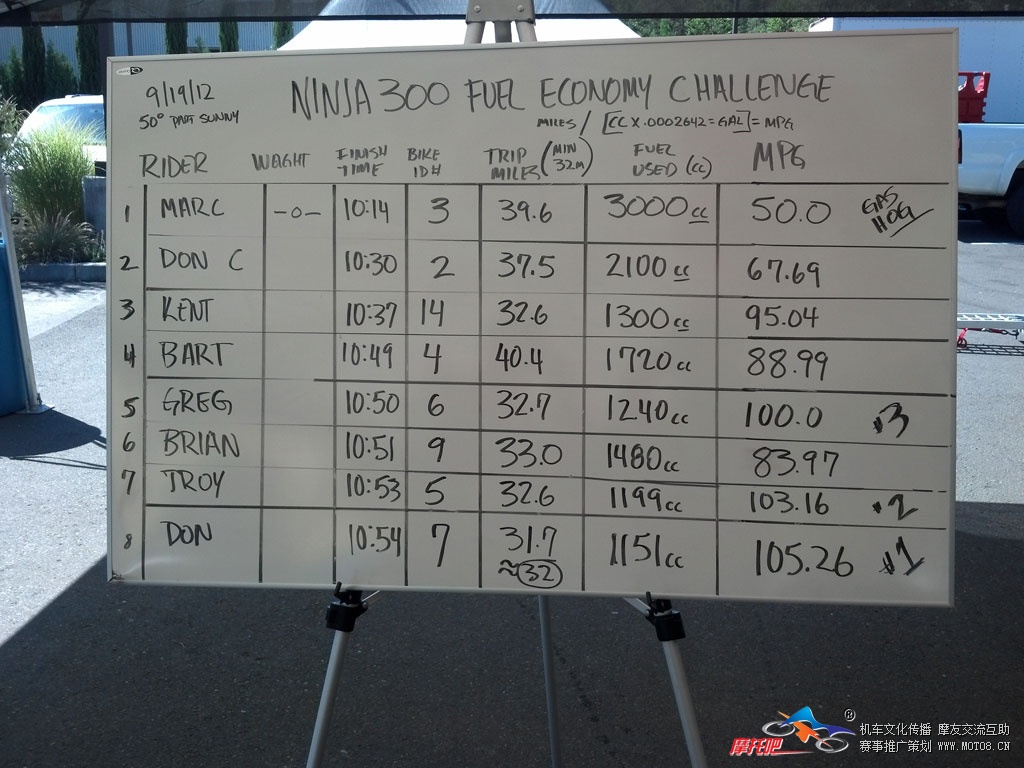 9/19/12
50° PART SUNNY
NINJA 300 FUEL ECONOMY CHALLENGE
MILES / [CC X .0002642 = GAL] = MPG
RIDER WAGHT FINISH TIME BIKE ID# TRIP MILES (MIN 32M) FUEL USED (CC) MPG
1 MARC -0- 10:14 3 39.6 3000 cc 50.0 GAS HOG
2 DON C 10:30 2 37.5 2100 cc 67.69
3 KENT 10:37 14 32.6 1300 cc 95.04
4 BART 10:49 4 40.4 1720 cc 88.99
5 GREG 10:50 6 32.7 1240 cc 100.0 #3
6 BRIAN 10:51 9 33.0 1480 cc 83.97
7 TROY 10:53 5 32.6 1199 cc 103.16 #2
8 DON 10:54 7 31.7 ≈32 1151 cc 105.26 #1
摩托吧 ®
机车文化传播 摩友交流互助
赛事推广策划 WWW.MOTO8.CN